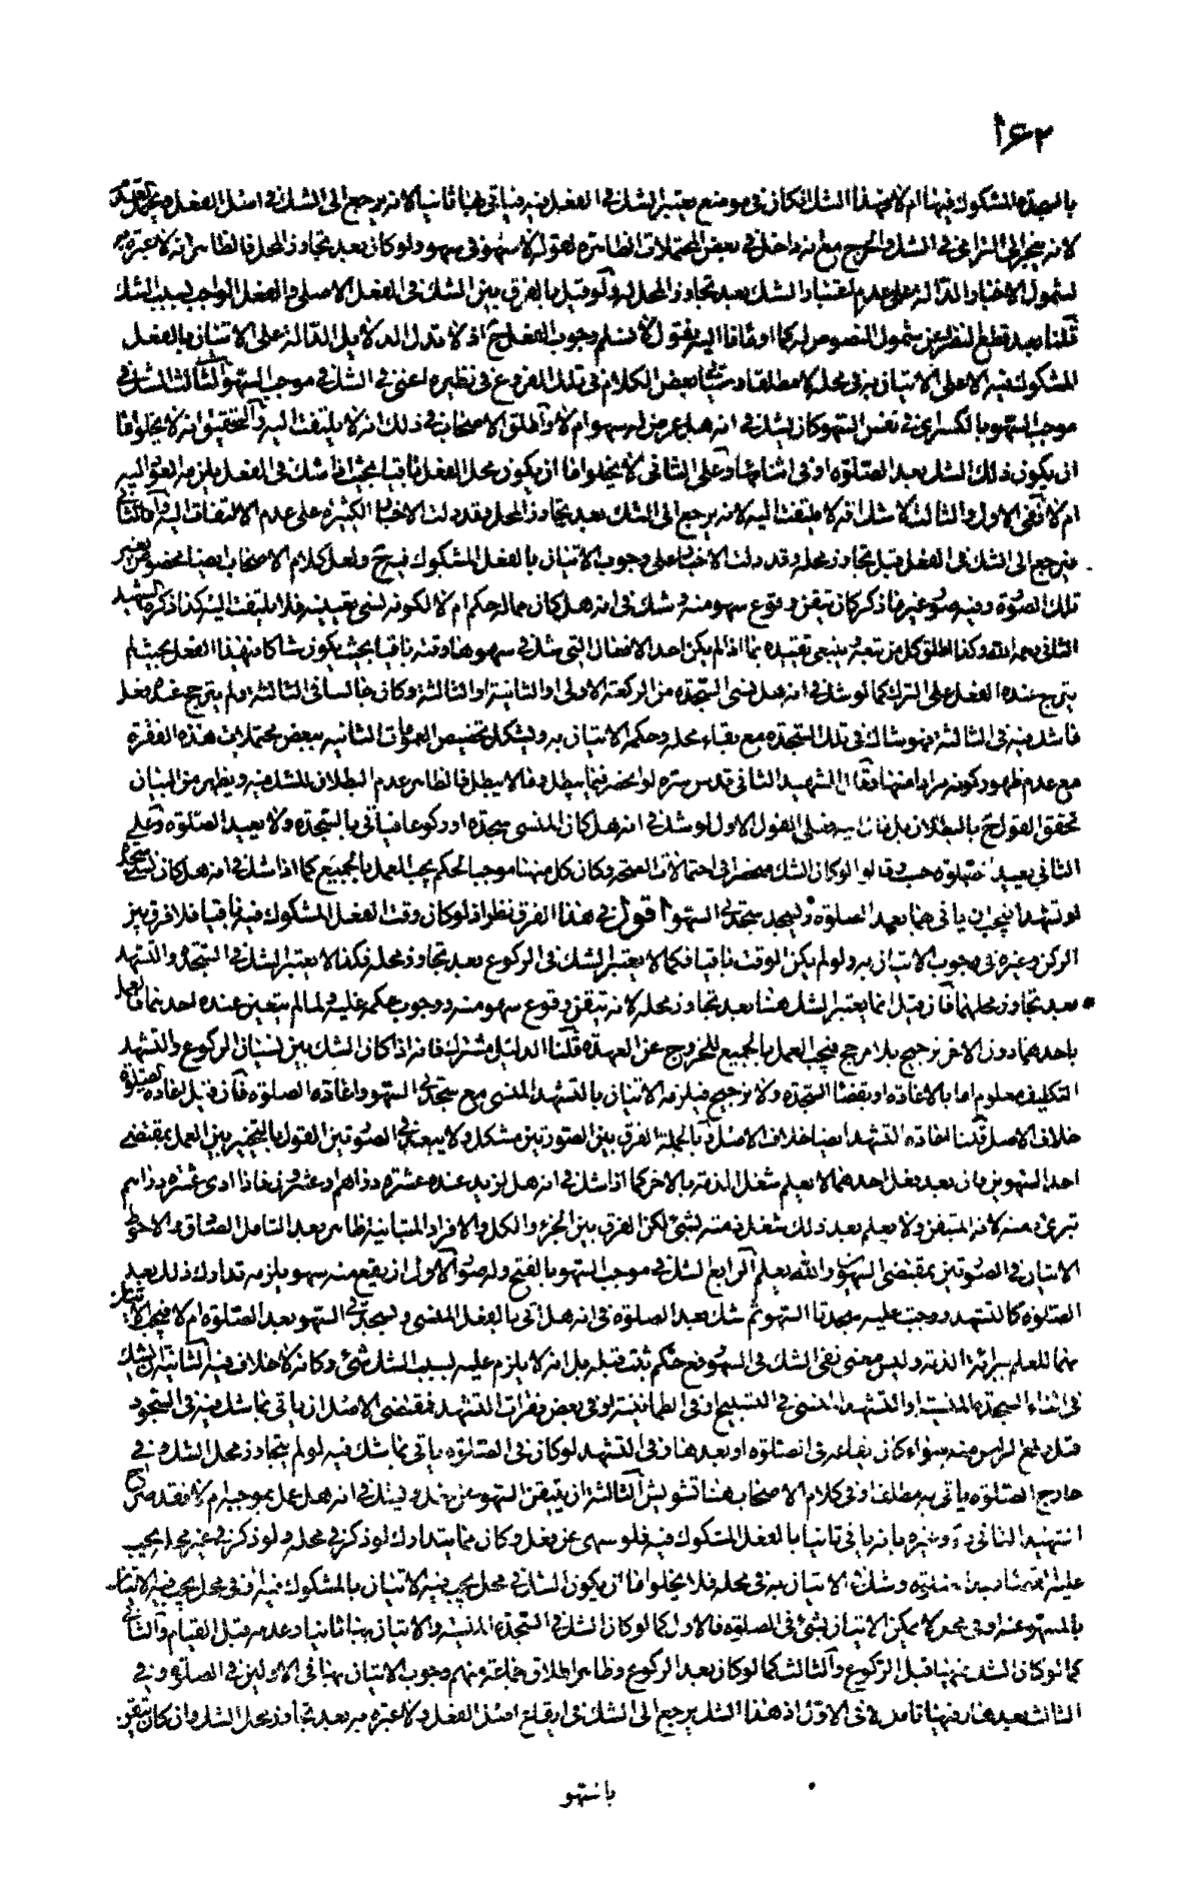 ١٦٢
بالسجدة المشكوك فيها ام لا فهذا الشك ان كان في موضع يعتبر الشك في الفعل فيه فياتي بها ثانيا لانه يرجع الى الشك في اصل الفعل ويحتمل
لانه ينجر الى الترامي في الشك والحرج مع انه داخل في بعض المحتملات الظاهرة لقوله لا سهو في سهو ولو كان بعد تجاوز المحل فالظاهر انه لا عبرة به
لشمول الاخبار الدالة على عدم اعتبار الشك بعد تجاوز المحل له ولو قيل بالفرق بين الشك في الفعل الاصلي والفعل الواجب بسبب الشك
قلنا بعد قطع النظر عن شمول النصوص له كما اومانا اليه نقول لا نسلم وجوب الفعل ح اذ لا تدل الدلايل الدالة على الاتيان بالفعل
المشكوك فيه الا على الاتيان به في محله لا مطلقا وسياتي بعض الكلام في تلك الفروع في نظيره اعني في الشك في موجب السهو الثالث الشك في
موجب السهو بالكسر اي في نفس السهو كان يشك في انه هل عرض له سهو ام لا واطلق الاصحاب في ذلك انه لا يلتفت اليه والتحقيق انه لا يخلو اما
ان يكون ذلك الشك بعد الصلوة او في اثنائها وعلى الثاني لا يخلو اما ان يكون محل الفعل باقيا بحيث اذا شك في الفعل يلزمه العود اليه
ام لا ففي الاول والثالث لا شك انه لا يلتفت اليه لانه يرجع الى الشك بعد تجاوز المحل وقد دلت الاخبار الكثيرة على عدم الالتفات اليه واما الثاني
فيرجع الى الشك في الفعل قبل تجاوز محله وقد دلت الاخبار على وجوب الاتيان بالفعل المشكوك فيه ح ولعل كلام الاصحاب ايضا مخصوص بغير
تلك الصورة وفيه صور غير ما ذكر كان تيقن وقوع سهو منه وشك في انه هل كان مما له حكم ام لا لكونه نسي تعيينه فلا يلتفت اليه كذا ذكره الشهيد
الثاني رحمه الله وكذا اطلق كل من تبعه وينبغي تقييده بما اذا لم يكن احد الافعال التي شك في سهوها وقته باقيا بحيث يكون شاكا في هذا الفعل بحيث لم
يترجح عنده الفعل على الترك كما لو شك في انه هل نسي السجدة من الركعة الاولى او الثانية او الثالثة وكان جالسا في الثالثة ولم يترجح عنده فعل
ما شك فيه في الثالثة فهو شاك في تلك السجدة مع بقاء محله وحكمه الاتيان به ويشكل تخصيص العمومات الثانية ببعض محتملات هذه الفقرة
مع عدم ظهور كونه مرادا منها وقال الشهيد الثاني قدس سره لو انحصر فيما يبطل وما لا يبطل فالظاهر عدم البطلان للشك فيه ويظهر من البيان
تحقق القول ح بالبطلان فعلى القول الاول لو شك في انه هل كان المنسي سجدة او ركوعا فياتي بالسجدة ولا يعيد الصلوة وعلى
الثاني يعيد صلوته وقالوا لو كان الشك منحصرا في احتمالات الصحة وكان كل منها موجبا لحكم يجب العمل بالجميع كما اذا شك في انه هل كان نسي سجدة
او تشهدا فيجب ان ياتي بهما بعد الصلوة ويسجد سجدتي السهو اقول في هذا الفرق نظر اذ لو كان وقت الفعل المشكوك فيه باقيا فلا فرق بين
الركن وغيره في وجوب الاتيان به ولو لم يكن الوقت باقيا فكما لا يعتبر الشك في الركوع بعد تجاوز محله فكذا لا يعتبر الشك في السجدة والتشهد
بعد تجاوز محلهما فان قيل انما يعتبر الشك هنا بعد تجاوز محله لانه تيقن وقوع سهو منه ووجوب حكمه عليه ولما لم يتعين عنده احدهما فالعمل
باحدهما دون الاخر ترجيح بلا مرجح فيجب العمل بالجميع للخروج عن العهدة قلنا الدليل مشترك فانه اذا كان الشك بين نسيان الركوع والتشهد
التكليف معلوم اما بالاعادة او بقضاء السجدة ولا ترجيح فيلزمه الاتيان بالتشهد المنسي مع سجدتي السهو واعادة الصلوة فان قيل اعادة الصلوة
خلاف الاصل قلنا اعادة التشهد ايضا خلاف الاصل وبالجملة الفرق بين الصورتين مشكل ولا يبعد في الصورتين القول بالتخيير بين العمل بمقتضى
احد السهوين فانه بعد فعل احدهما لا يعلم شغل الذمة بالاخر كما اذا شك في انه هل لزيد عنده عشرة دراهم او عشرون فاذا ادى عشرة دراهم
تبرئ ذمته لانه المتيقن ولا يعلم بعد ذلك شغل ذمته بشئ لكن الفرق بين الجزء والكل والافراد المتباينة ظاهر بعد التامل الصادق والاحوط
الاتيان في الصورتين بمقتضى السهوين والله يعلم الرابع الشك في موجب السهو بالفتح وله صور الاول ان يقع منه سهو يلزمه تدارك ذلك بعد
الصلوة كالتشهد ووجبت عليه سجدتا السهو ثم شك بعد الصلوة في انه هل اتى بالفعل المنسي وبسجدتي السهو بعد الصلوة ام لا فيجب الاتيان
بهما للعلم ببرائة الذمة وليس معنى نفي الشك في السهو رفع حكم ثبت قبله بل انه لا يلزم عليه بسبب الشك شئ وكانه لا خلاف فيه الثانية ان يشك
في اثناء السجدة المنسية او التشهد المنسي في التسبيح او في الطمانينة او في بعض فقرات التشهد فمقتضى الاصل ان ياتي بما شك فيه في السجود
قبل رفع الراس منه سواء كان ايقاعه في الصلوة او بعدها وفي التشهد لو كان في الصلوة ياتي بما شك فيه لو لم يتجاوز محل الشك وفي
خارج الصلوة ياتي به مطلقا وفي كلام الاصحاب هنا تشويش الثالثة ان يتيقن السهو عن فعل ويشك في انه هل عمل بموجبه ام لا فقد صرح
الشهيد الثاني ره وغيره بانه ياتي ثانيا بالفعل المشكوك فيه فلو سهى عن فعل وكان مما يتدارك لو ذكر في محله ولو ذكر في غير محله يجب
عليه القضاء بعد الصلوة وشك في الاتيان به في محله فلا يخلو اما ان يكون الشك في محل يجب فيه الاتيان بالمشكوك فيه او في محل يجب فيه الاتيان
بالمسهو عنه او في محل لا يمكن الاتيان بشئ في الصلوة فالاول كما لو كان الشك في السجدة المنسية والاتيان بها ثانيا وعدمه قبل القيام والثاني
كما لو كان الشك فيها قبل الركوع والثالث كما لو كان بعد الركوع وظاهر اطلاق جماعة منهم وجوب الاتيان بها في الاولين في الصلوة وفي
الثالث بعدها وفيها تامل في الاول اذ هذا الشك يرجع الى الشك في ايقاع اصل الفعل ولا عبرة به بعد تجاوز محل الشك وان كان تيقن
بالسهو